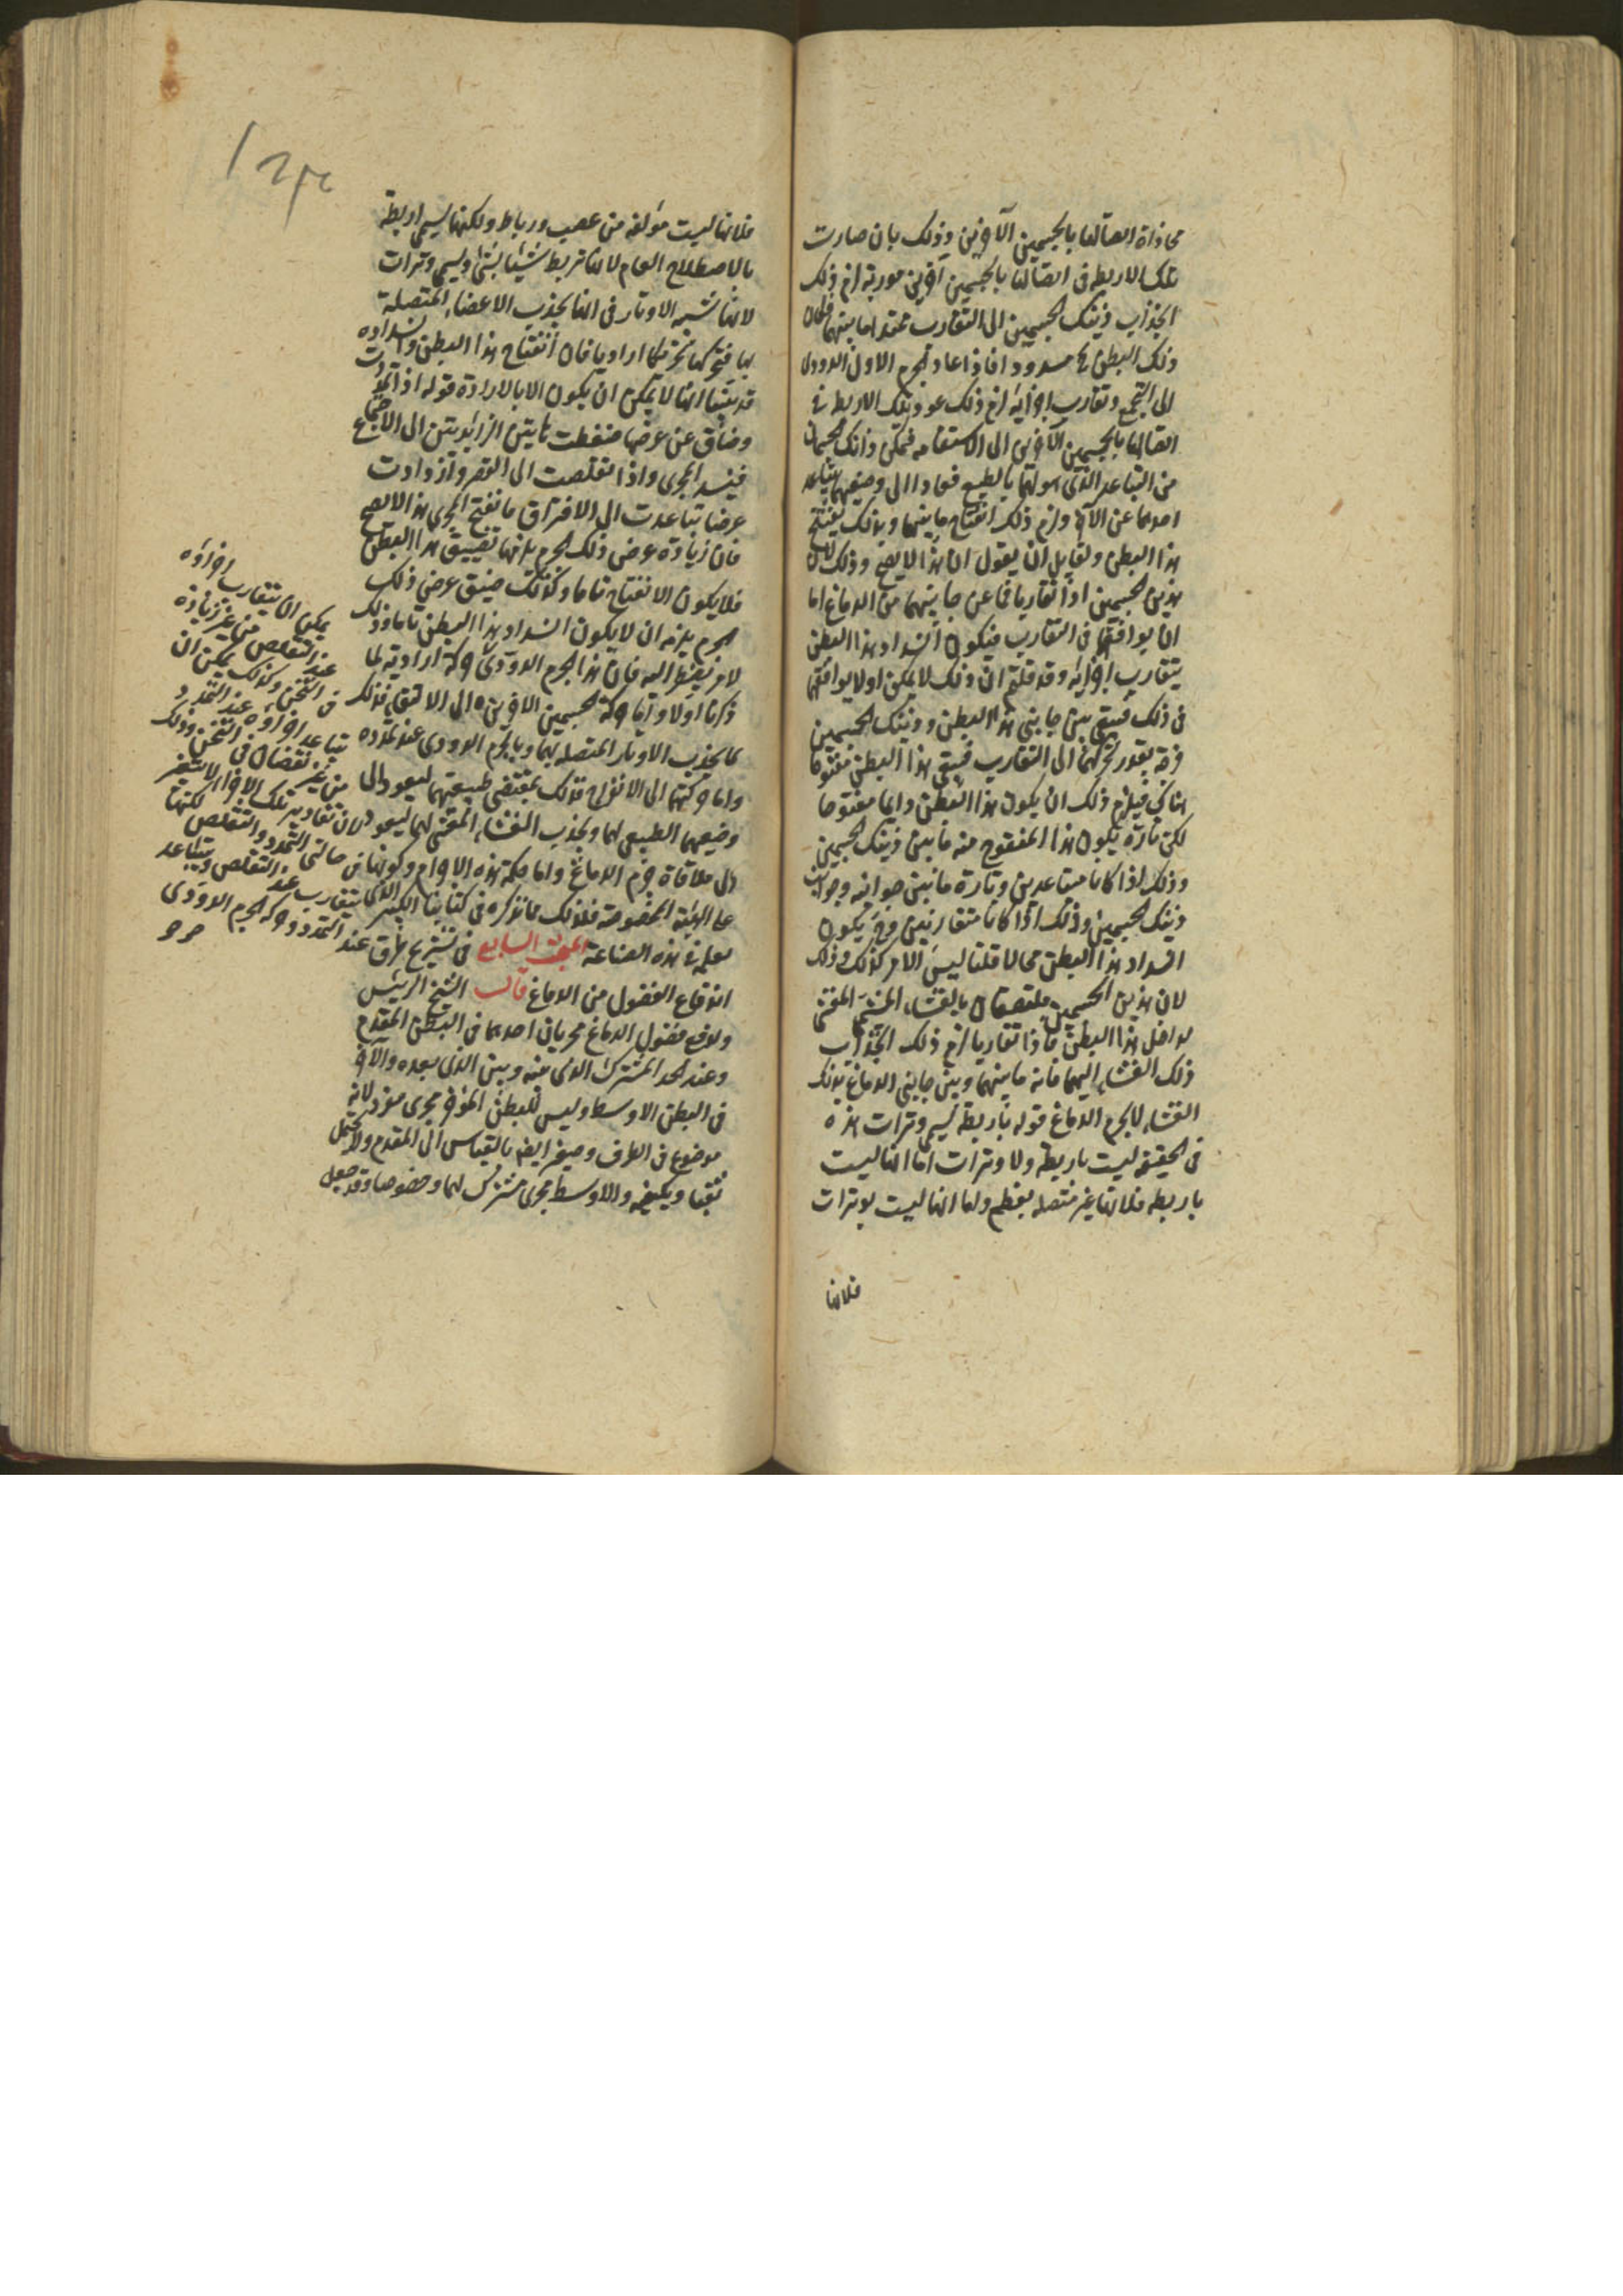 محاذاة اتصالها بالجسمين الآخرين وذلك بان صارت
تلك الاربطة فى اتصالها بالجسمين آخرين موربة لزم ذلك
انجذاب ذينك الجسمين الى التقارب محتد ما بينهما فكان
ذلك البطن مسدودا فاذا عاد الجرم الاول الدودى
الى التجمع وتقارب اجزائه لزم ذلك عود تلك الاربطة فى
اتصالها بالجسمين الآخرين الى الاستقامة فتمكن ذانك الجسمان
من التباعد الذى هو لهما بالطبع فعادا الى وضعهما بتباعد
احدهما عن الآخر ولزم ذلك انفتاح ما بينهما وبذلك ينفتح
هذا البطن ولقايل ان يقول ان هذا لا يصح وذلك لان
هذين الجسمين اذا تقاربا فاعن جانبيهما من الدماغ اما
ان يوافقهما فى التقارب فيكون انسداد هذا البطن
بتقارب اجزائه وقد قلتم ان ذلك لا يمكن او لا يوافقهما
فى ذلك فيبقى بين جانبى هذا البطن وذينك الجسمين
فرجة بقدر تحركهما الى التقارب فيبقى هذا البطن مفتوحا
هناك فيلزم ذلك ان يكون هذا البطن دايما مفتوحا
لكن تارة يكون هذا المفتوح منه ما بين ذينك الجسمين
وذلك اذا كانا متباعدين وتارة ما بين جوانبه وجوانب
ذينك الجسمين وذلك اذا كانا متقاربين وح يكون
انسداد هذا البطن محالا قلنا ليس الامر كذلك وذلك
لان هذين الجسمين ملتصقان بالغشاء المغشى
لداخل هذا البطن فاذا تقاربا لزم ذلك انجذاب
ذلك الغشاء اليهما فانه ما بينهما وبين جانبى الدماغ بذلك
الغشاء لا بجرم الدماغ قوله باربطة يسمى وترات هذه
فى الحقيقة ليست باربطة ولا وترات اما انها ليست
باربطة فلانها غير متصلة بعظم واما انها ليست بوترات
فلانها
فلانها ليست مؤلفة من عصب ورباط ولكنها يسمى اربطة
بالاصطلاح العام لانها تربط شيئا بشئ ويسمى وترات
لانها تشبه الاوتار فى انها يجذب الاعضاء المتصلة
بها فتحركها تحريكا اراديا فان انفتاح هذا البطن وانسداده
قد بينا انها لا يمكن ان يكون الا بالارادة قوله اذا تمددت
وضاق عن عرضها ضغطت هاتين الزائدتين الى الاجتماع
فينسد المجرى واذا تقلصت الى القصر وازدادت
عرضا تباعدت الى الافتراق فانفتح المجرى هذا لا يصح
فان زيادة عرض ذلك الجرم يلزمها تضييق هذا البطن
فلا يكون الانفتاح تاما وكذلك ضيق عرض ذلك
الجرم يلزمه ان لا يكون انسداد هذا البطن تاما وذلك
لامر يضطر اليه فان هذا الجرم الدودى حركته ارادية لما
ذكرنا اولا واما حركة الجسمين الآخرين الى الالتقاء فذلك
لما يجذب الاوتار المتصلة بهما وبالجرم الدودى عند تمدده
واما حركتهما الى الانفراج فذلك بمقتضى طبيعتهما ليعود الى
وضعهما الطبيعى لهما ويجذب الغشاء المغشى لهما ليعود
الى ملاقاة جرم الدماغ واما حكمة هذه الاجرام وكونها
على الهيئة المخصوصة فلذلك مما نذكره فى كتابنا الكبير الذى
نعمله فى هذه الصناعة البحث السابع فى تشريح طرق
اندفاع الفضول من الدماغ قال الشيخ الرئيس
ولدفع فضول الدماغ مجريان احدهما فى البطن المقدم
وعند الحد المشترك الذى منه وبين الذى بعده والآخر
فى البطن الاوسط وليس للبطن المؤخر مجرى مفرد لانه
موضوع فى الطرف وصغير ايضا بالقياس الى المقدم ولا يحتمل
ثقبا ويكفيه والاوسط مجرى مشترك لهما وخصوصا وقد جعل
يمكن ان يتقارب اجزاؤه
عند التقلص من غير زيادة
فى الثخن وكذلك يمكن ان
تباعد اجزاؤه عند التمدد
من غير نقصان فى الثخن وذلك
لان تقادير تلك الاجزاء لا يتغير
فى حالتى التمدد والتقلص لكنها
يتقارب عند التقلص ويتباعد
عند التمدد وحركة الجرم الدودى